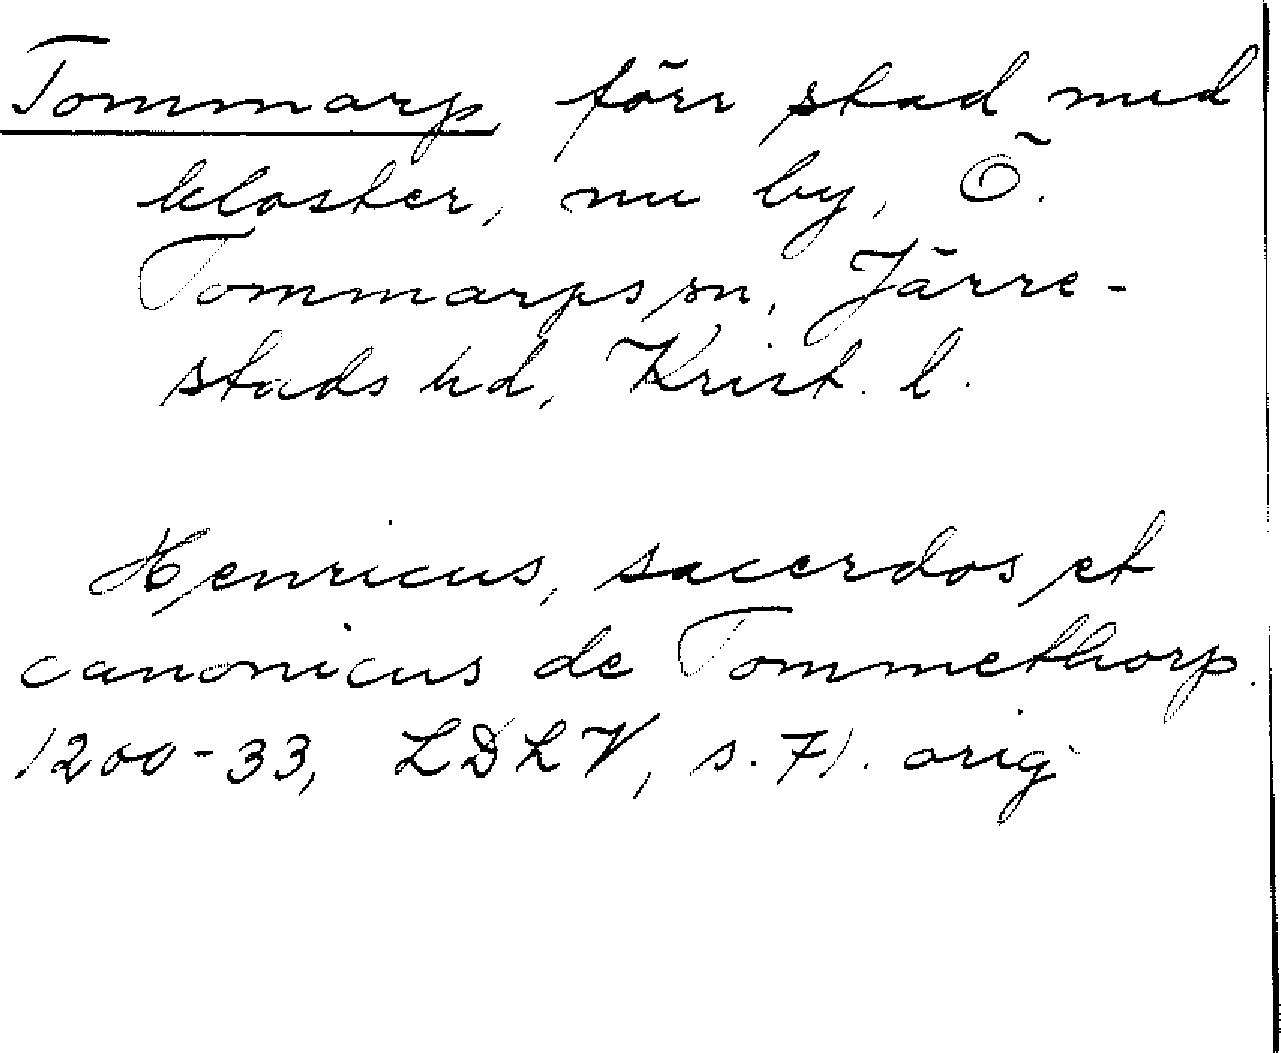 Tommarp förr stad med
kloster, nu by, Ö.
Tommarps sn, Järre-
stads hd, Krist. l.
Henricus, sacerdos et
canonicus de Tommethorp.
1200-33, LDLV, s. 71. orig